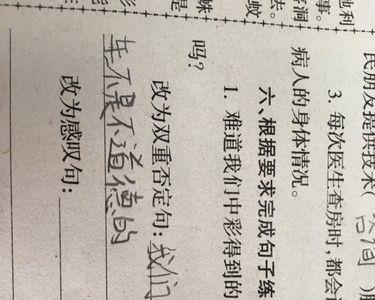 民朋友提供技术(咨询)
3. 每次医生查房时,都会
病人的身体情况。
六、根据要求完成句子练
1. 难道我们中彩得到的
吗?
改为双重否定句:我们
车不是不道德的
改为感叹句:
地利
事。
洞
法。
蚊
是